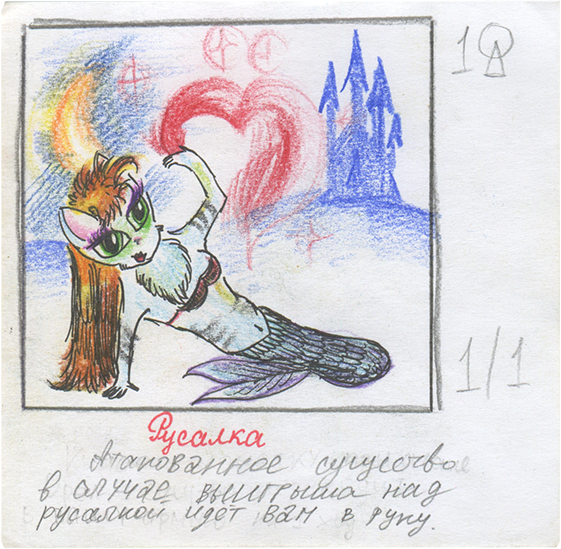 1
1/1
Русалка
Атакованное существо
в случае выигрыша над
русалкой идет вам в руку.